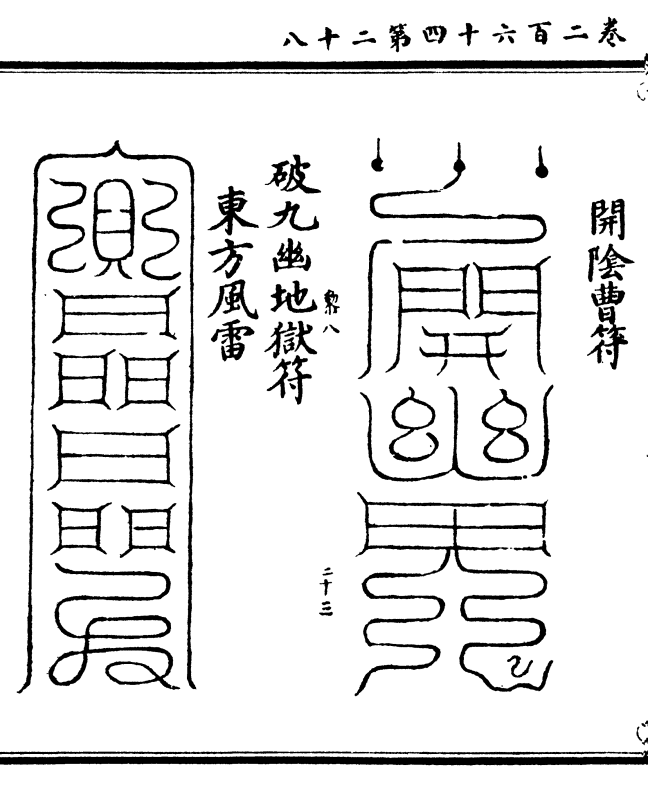 卷二百六十四第二十八
開陰曹符
黎八
二十三
破九幽地獄符
東方風雷